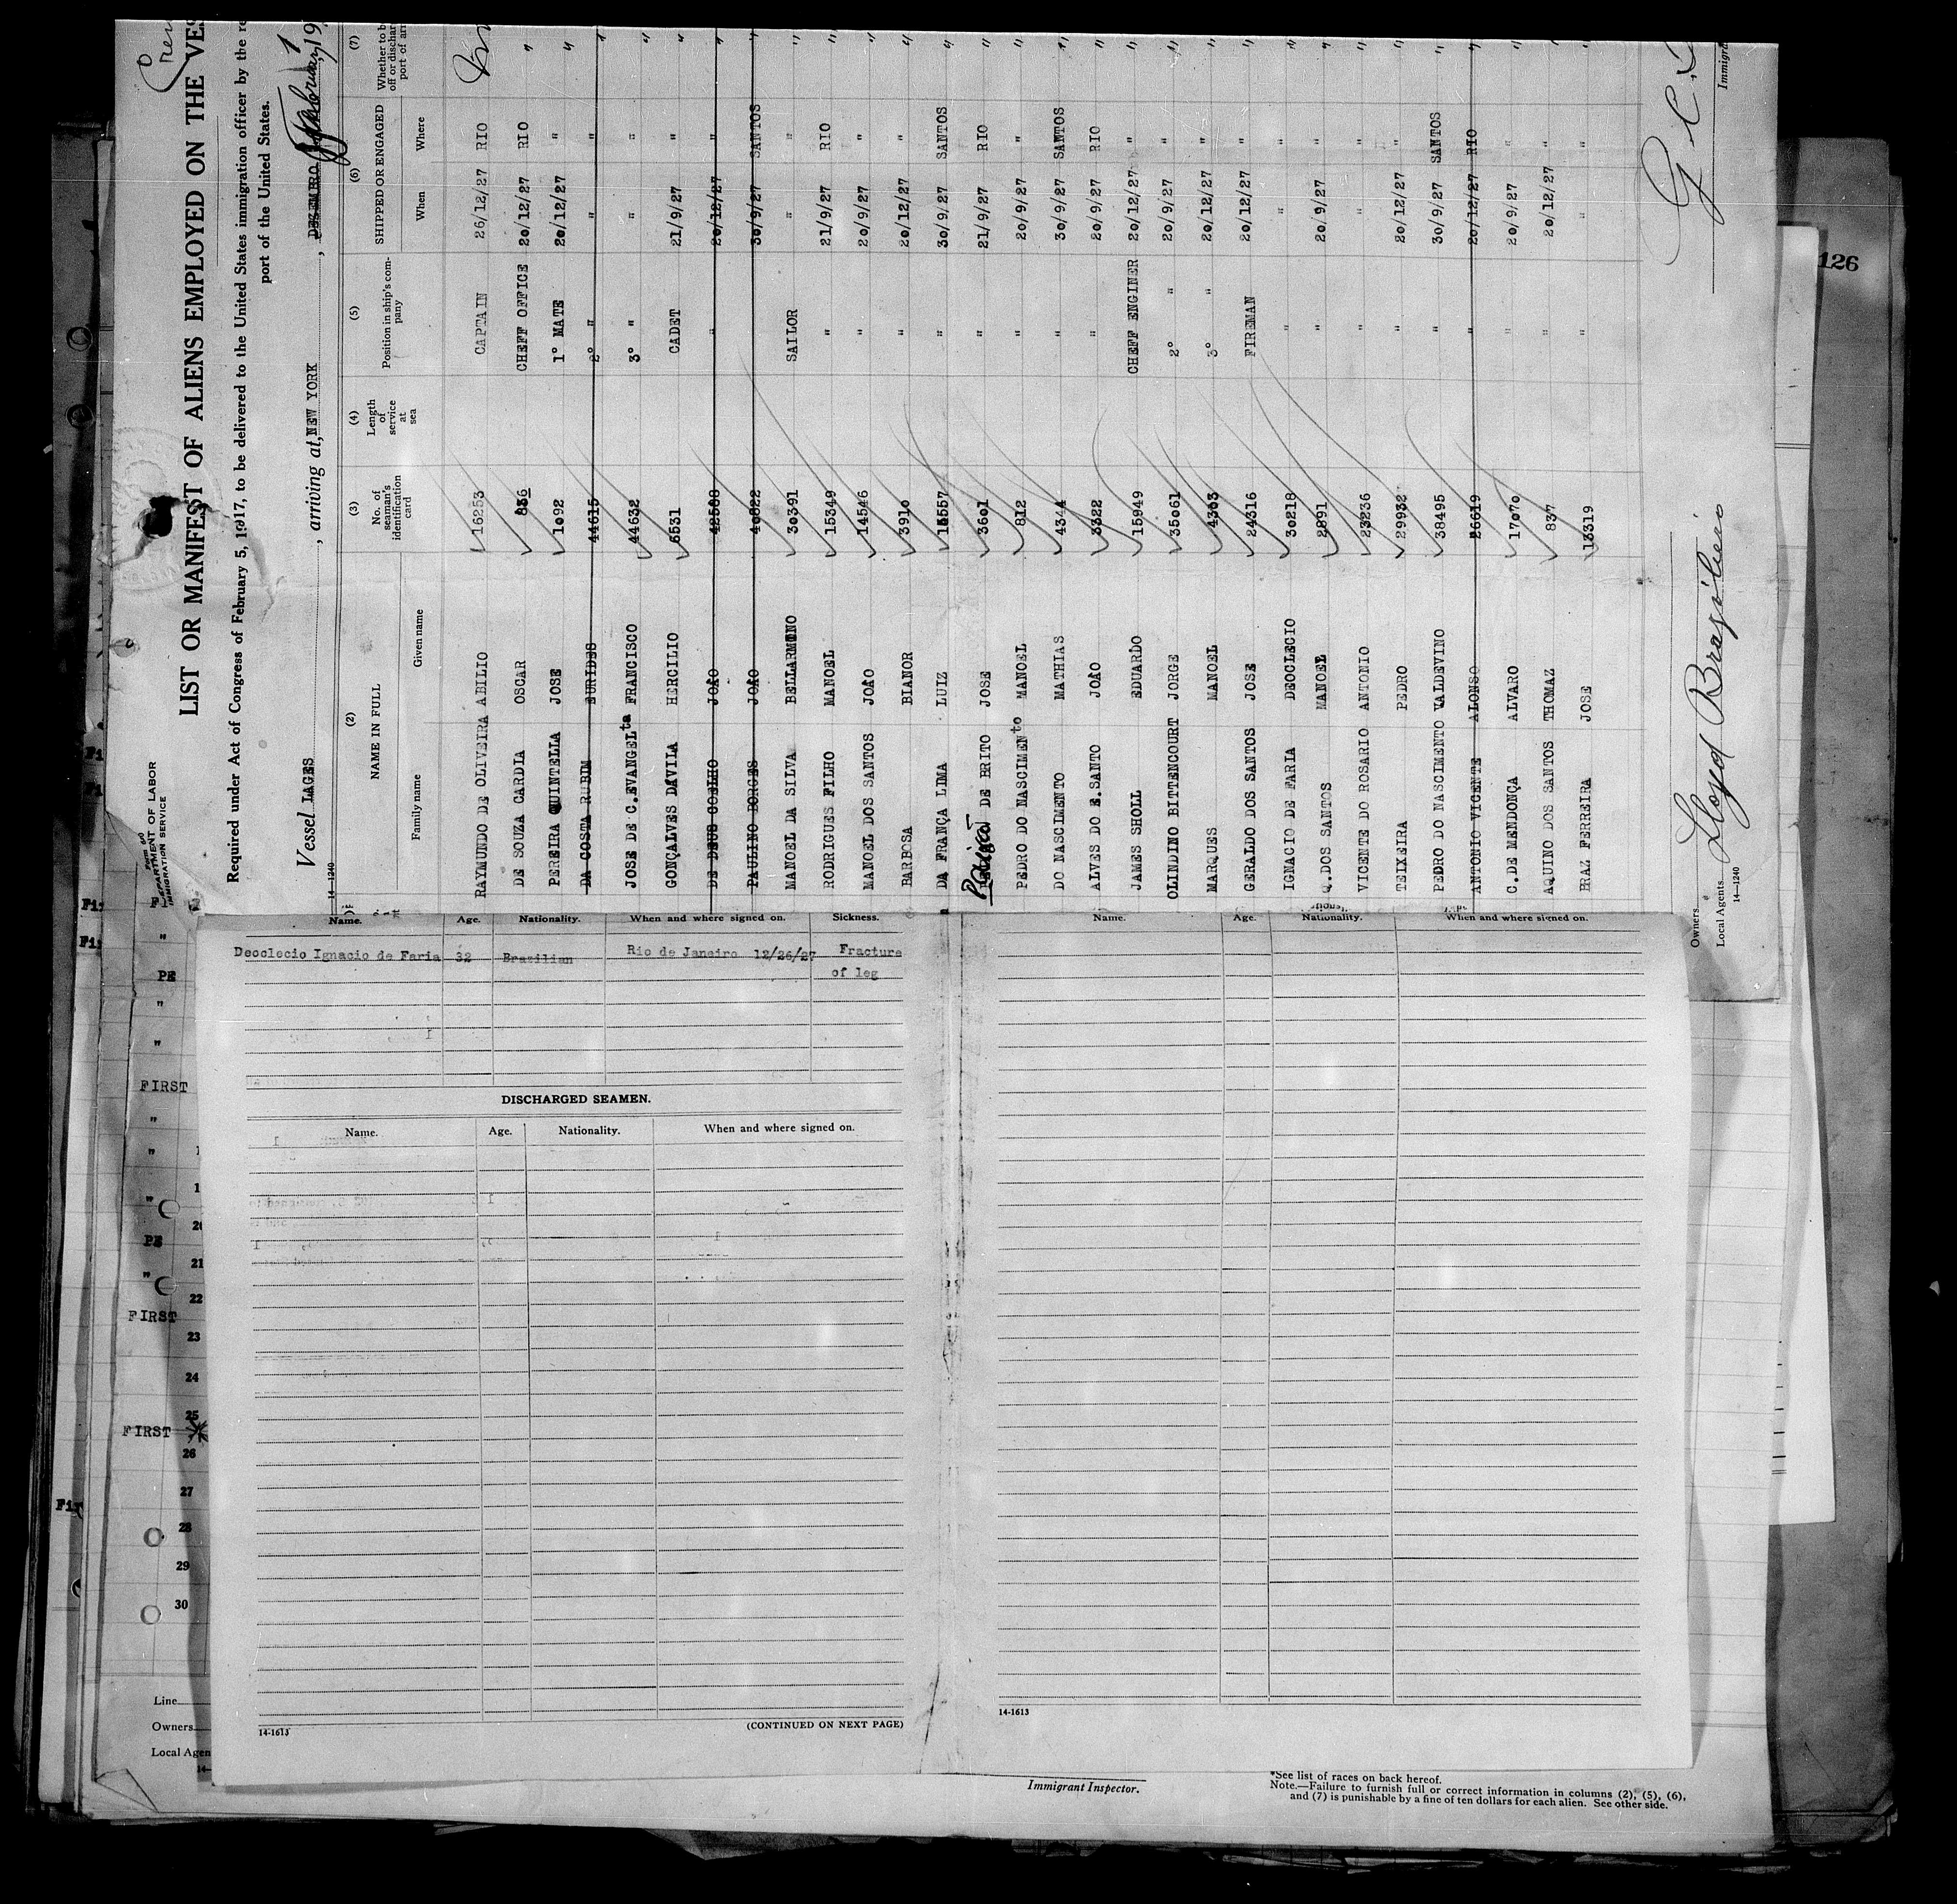 LIST OR MANIFEST OF ALIENS EMPLOYED ON THE VES
Required under Act of Congress of February 5, 1917, to be delivered to the United States immigration officer by the re
port of the United States.
Vessel LAGES, arriving at, NEW YORK, DEZEMBRO February 1, 19
14—1240
(2) (3) (4) (5) (6) (7)
NAME IN FULL No. of seaman's identification card Length of service at sea Position in ship's company SHIPPED OR ENGAGED Whether to b off or dischar port of arr
Family name Given name When Where
RAYMUNDO DE OLIVEIRA ABILIO 16253 CAPTAIN 26/12/27 RIO
DE SOUZA CARDIA OSCAR 836 CHEFF OFFICE 20/12/27 RIO "
PEREIRA QUINTELLA JOSE 1092 1° MATE 20/12/27 " "
DA COSTA RUBIM EURIDES 44615 2° " " " "
JOSE DE C.EVANGELta FRANCISCO 44632 3° " " " "
GONÇALVES DAVILA HERCILIO 6531 CADET 21/9/27 " "
DE DEUS COELHO JOÃO 42588 " 20/12/27 " "
PAULINO BORGES JOÃO 40822 30/9/27 SANTOS "
MANOEL DA SILVA BELLARMINO 30391 SAILOR " " "
RODRIGUES FILHO MANOEL 15349 " 21/9/27 RIO "
MANOEL DOS SANTOS JOÃO 14546 " 20/9/27 " "
BARBOSA BIANOR 3910 " 20/12/27 " "
DA FRANÇA LIMA LUIZ 15557 " 30/9/27 SANTOS "
DE BRITO JOSE 3601 " 21/9/27 RIO "
PEDRO DO NASCIMENto MANOEL 812 " 20/9/27 " "
DO NASCIMENTO MATHIAS 4344 " 30/9/27 SANTOS "
ALVES DO E.SANTO JOÃO 3322 " 20/9/27 RIO "
JAMES SHOLL EDUARDO 15949 CHEFF ENGINER 20/12/27 " "
OLINDINO BITTENCOURT JORGE 35061 2° " 20/9/27 " "
MARQUES MANOEL 4303 3° " 20/12/27 " "
GERALDO DOS SANTOS JOSE 24316 FIREMAN 20/12/27 " "
IGNACIO DE FARIA DEOCLECIO 30218 " " " "
Q.DOS SANTOS MANOEL 2891 " 20/9/27 " "
VICENTE DO ROSARIO ANTONIO 23236 " " " "
TEIXEIRA PEDRO 29932 " 20/12/27 " "
PEDRO DO NASCIMENTO VALDEVINO 38495 " 30/9/27 SANTOS "
ANTONIO VICENTE ALONSO 26619 " 20/12/27 RIO "
C.DE MENDONÇA ALVARO 17070 " 20/9/27 " "
AQUINO DOS SANTOS THOMAZ 837 " 20/12/27 " "
BRAZ FERREIRA JOSE 13319 " " "
Owners
Local Agents Lloyd Brasileiro
14—1240
Immigr
126
DEPARTMENT OF LABOR
IMMIGRATION SERVICE
Name. Age. Nationality. When and where signed on. Sickness.
Deoclecio Ignacio de Faria 32 Brazilian Rio de Janeiro 12/26/27 Fracture
of leg
DISCHARGED SEAMEN.
Name. Age. Nationality. When and where signed on.
14-1613 (CONTINUED ON NEXT PAGE)
Name. Age. Nationality. When and where signed on.
14-1613
PE
"
"
FIRST
"
"
"
20
PE
21
"
22
FIRST
23
24
25
FIRST
26
27
28
29
30
Line
Owners
Local Agen
Immigrant Inspector.
*See list of races on back hereof.
Note.—Failure to furnish full or correct information in columns (2), (5), (6),
and (7) is punishable by a fine of ten dollars for each alien. See other side.